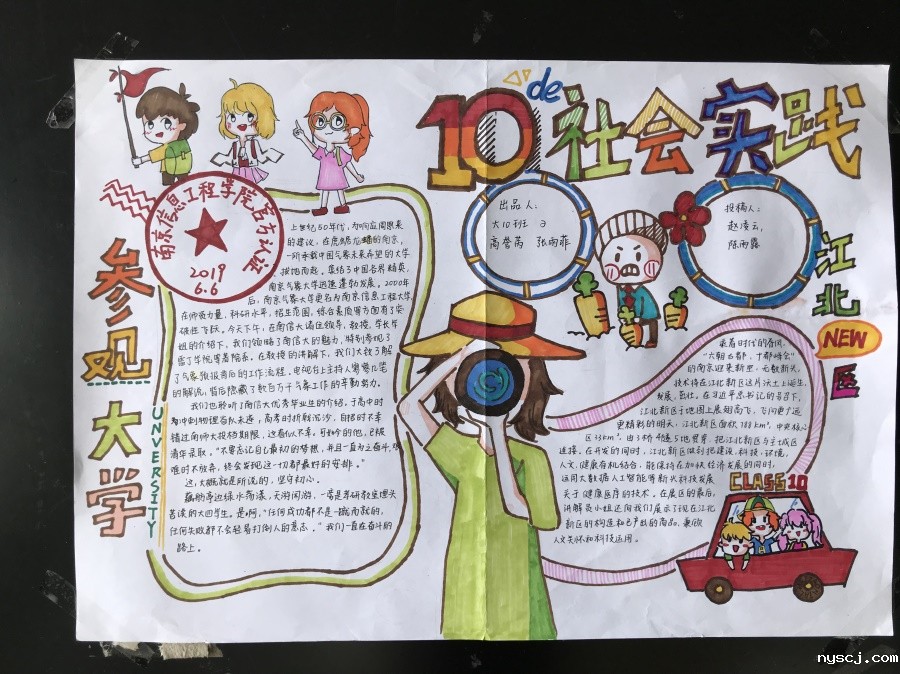 10 de 社会实践
南京信息工程学院官方认证
2019
6.6
参观大学
UNVERSITY
出品人:
大10班
投稿人:
赵凌云,
陈雨露
江北
NEW
区
CLASS 10
上世纪50年代,为响应周恩来
的建议,在虎踞龙蟠的南京,
一所承载中国气象未来希望的大学
拔地而起。集结了中国各界精英,
南京气象大学迅速蓬勃发展。2000年
后,南京气象大学更名为南京信息工程大学,
在师资力量,科研水平,招生范围,综合素质等方面有了突
破性飞跃。今天下午,在南信大诸位领导,教授,学长学
姐的介绍下,我们领略了南信大的魅力,特别参观了
雷丁学院等着院系。在教授的讲解下,我们大致了解
了气象预报背后的工作流程,电视台上主持人寥寥几笔
的解说,背后隐藏了数百万千气象工作的辛勤努力。
我们也聆听了南信大优秀毕业生的介绍。于高中时
期冲刺物理省队未遂,高考时折戟沉沙,自招时不幸
错过南师大投档期限,这看似不幸。可如今的他,已被
清华录取。“不要忘记自己最初的梦想,并且一直为之奋斗,艰
难时不放弃,终会发现这一切都最好的安排。”
这,大概就是所说的,坚守初心。
藕舫亭边绿水荡漾,天府阁游,一带是莘研教室埋头
苦读的大四学生。是啊,“任何成功都不是一蹴而就的,
任何失败都不会轻易打倒人的意志。”我们一直在奋斗的
路上。
乘着时代的春风,
“六朝古都,十都峥嵘”
的南京迎来新星。无数新兴
技术将在江北新区这片沃土上诞生,
发展,茁壮。在习近平总书记的号召下,
江北新区于地图上展翅高飞,飞向更广远
更精彩的明天。江北新区面积788km²,中央核心
区33km²,由3桥4隧5地贯穿,把江北新区与主城区
连接。在开发的同时,江北新区做到把建设,科技,环境,
人文,健康有机结合,能保持在加快经济发展的同时,
运用大数据人工智能等新兴科技发展
关于健康医疗的技术。在展区的最后,
讲解员小姐还向我们展示了现在江北
新区的构造和已产出的商品,兼顾
人文关怀和科技运用。
nyscj.com